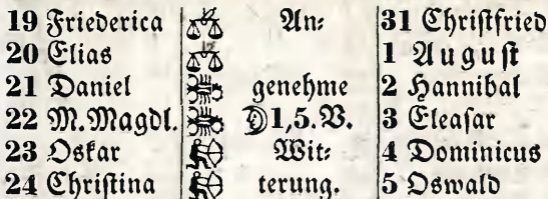 19 Friederica An⸗ 31 Christfried
20 Elias 1 August
21 Daniel genehme 2 Hannibal
22 M. Magdl. ☽ 1,5. V. 3 Eleasar
23 Oskar Wit⸗ 4 Dominicus
24 Christina terung. 5 Oswald